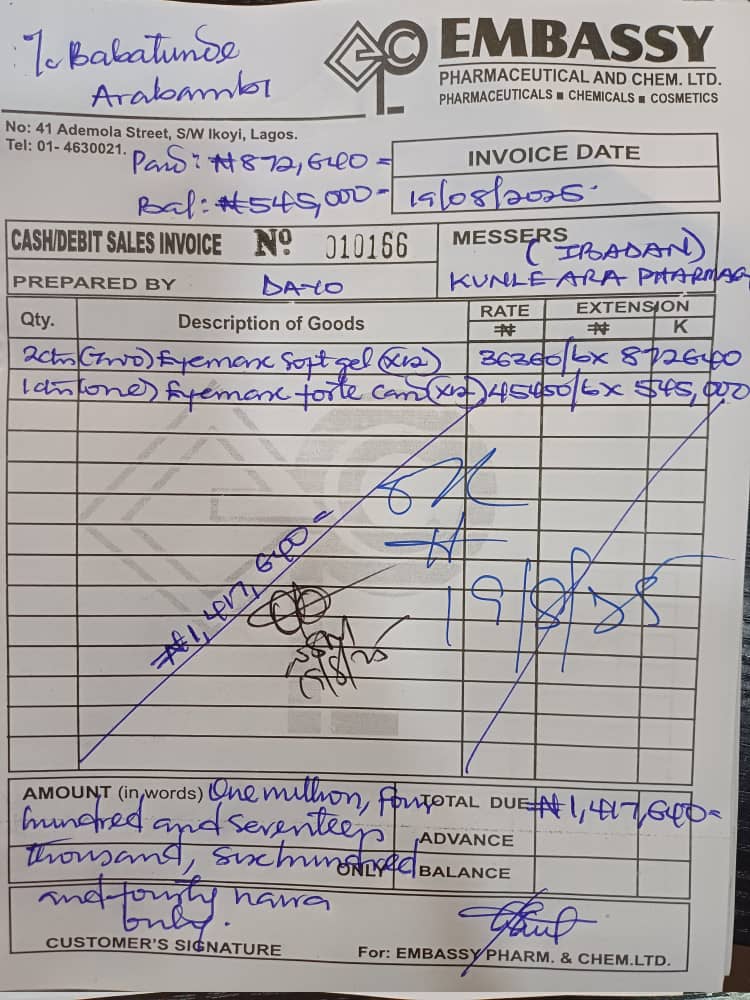 ℅ Babatunde
Arabambi
EMBASSY
PHARMACEUTICAL AND CHEM. LTD.
PHARMACEUTICALS ■ CHEMICALS ■ COSMETICS
No: 41 Ademola Street, S/W Ikoyi, Lagos.
Tel: 01- 4630021.
Paid: ₦872,640=
Bal: ₦545,000=
INVOICE DATE
19/08/2025.
CASH/DEBIT SALES INVOICE Nº 010166
MESSERS (IBADAN)
KUNLE ARA PHARMAC
PREPARED BY DAYO
Qty. Description of Goods RATE ₦ EXTENSION ₦ K
2ctn (Two) Eyemax Soft gel (x12) 36360/6x 872640
1ctn (one) Eyemax forte cam (x12) 45450/6x 545,000
OK
19/8/25
₦1,417,640=
SSM
19/8/25
AMOUNT (in words) One million, four
hundred and seventeen
thousand, six hundred ONLY
and fourty naira
only.
TOTAL DUE ₦1,417,640=
ADVANCE
BALANCE
CUSTOMER'S SIGNATURE
For: EMBASSY PHARM. & CHEM.LTD.